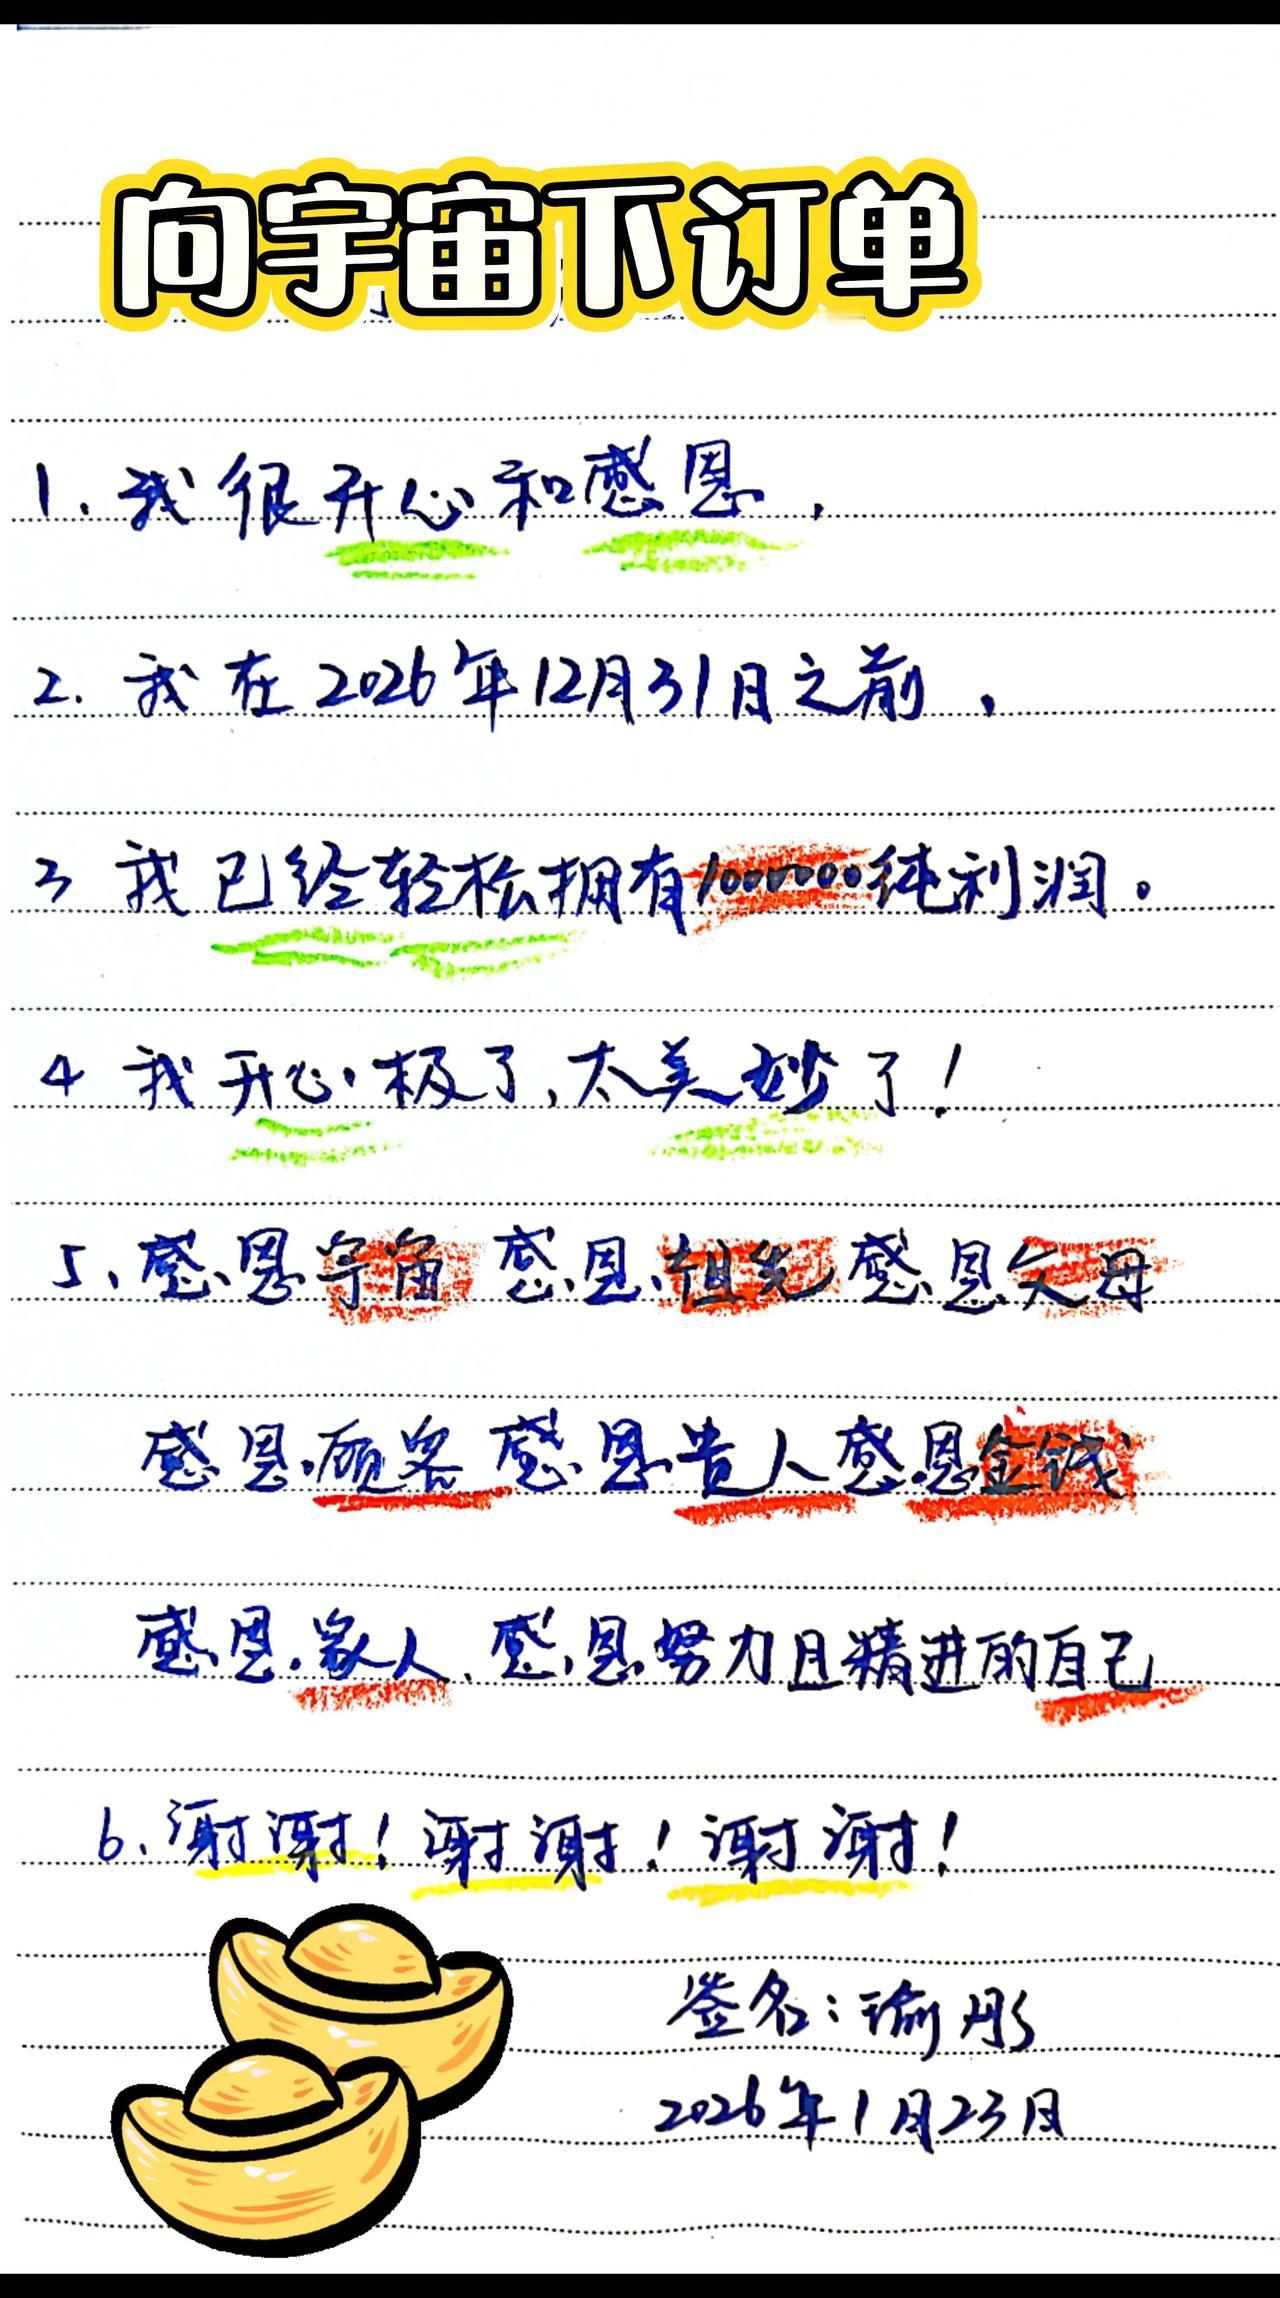 向宇宙下订单
1. 我很开心和感恩，
2. 我在2026年12月31日之前，
3 我已经轻松拥有1000000纯利润。
4 我开心极了，太美妙了！
5、感恩宇宙 感恩祖先 感恩父母
感恩顾客 感恩贵人 感恩金钱
感恩家人、感恩努力且精进的自己
6、谢谢！谢谢！谢谢！
签名：瑜彤
2026年1月23日